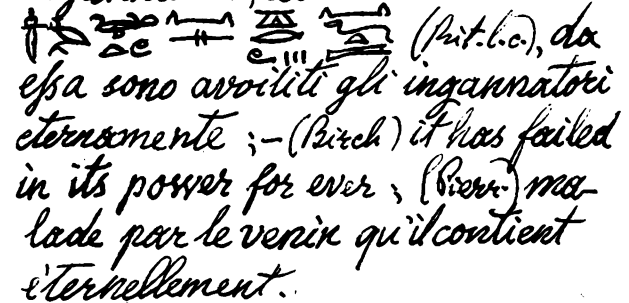 (Rit. l. c.), da
essa sono avviliti gli ingannatori
eternamente ; – (Birch) it has failed
in its power for ever ; (Pierr.) ma-
lade par le venin qu'il contient
éternellement.